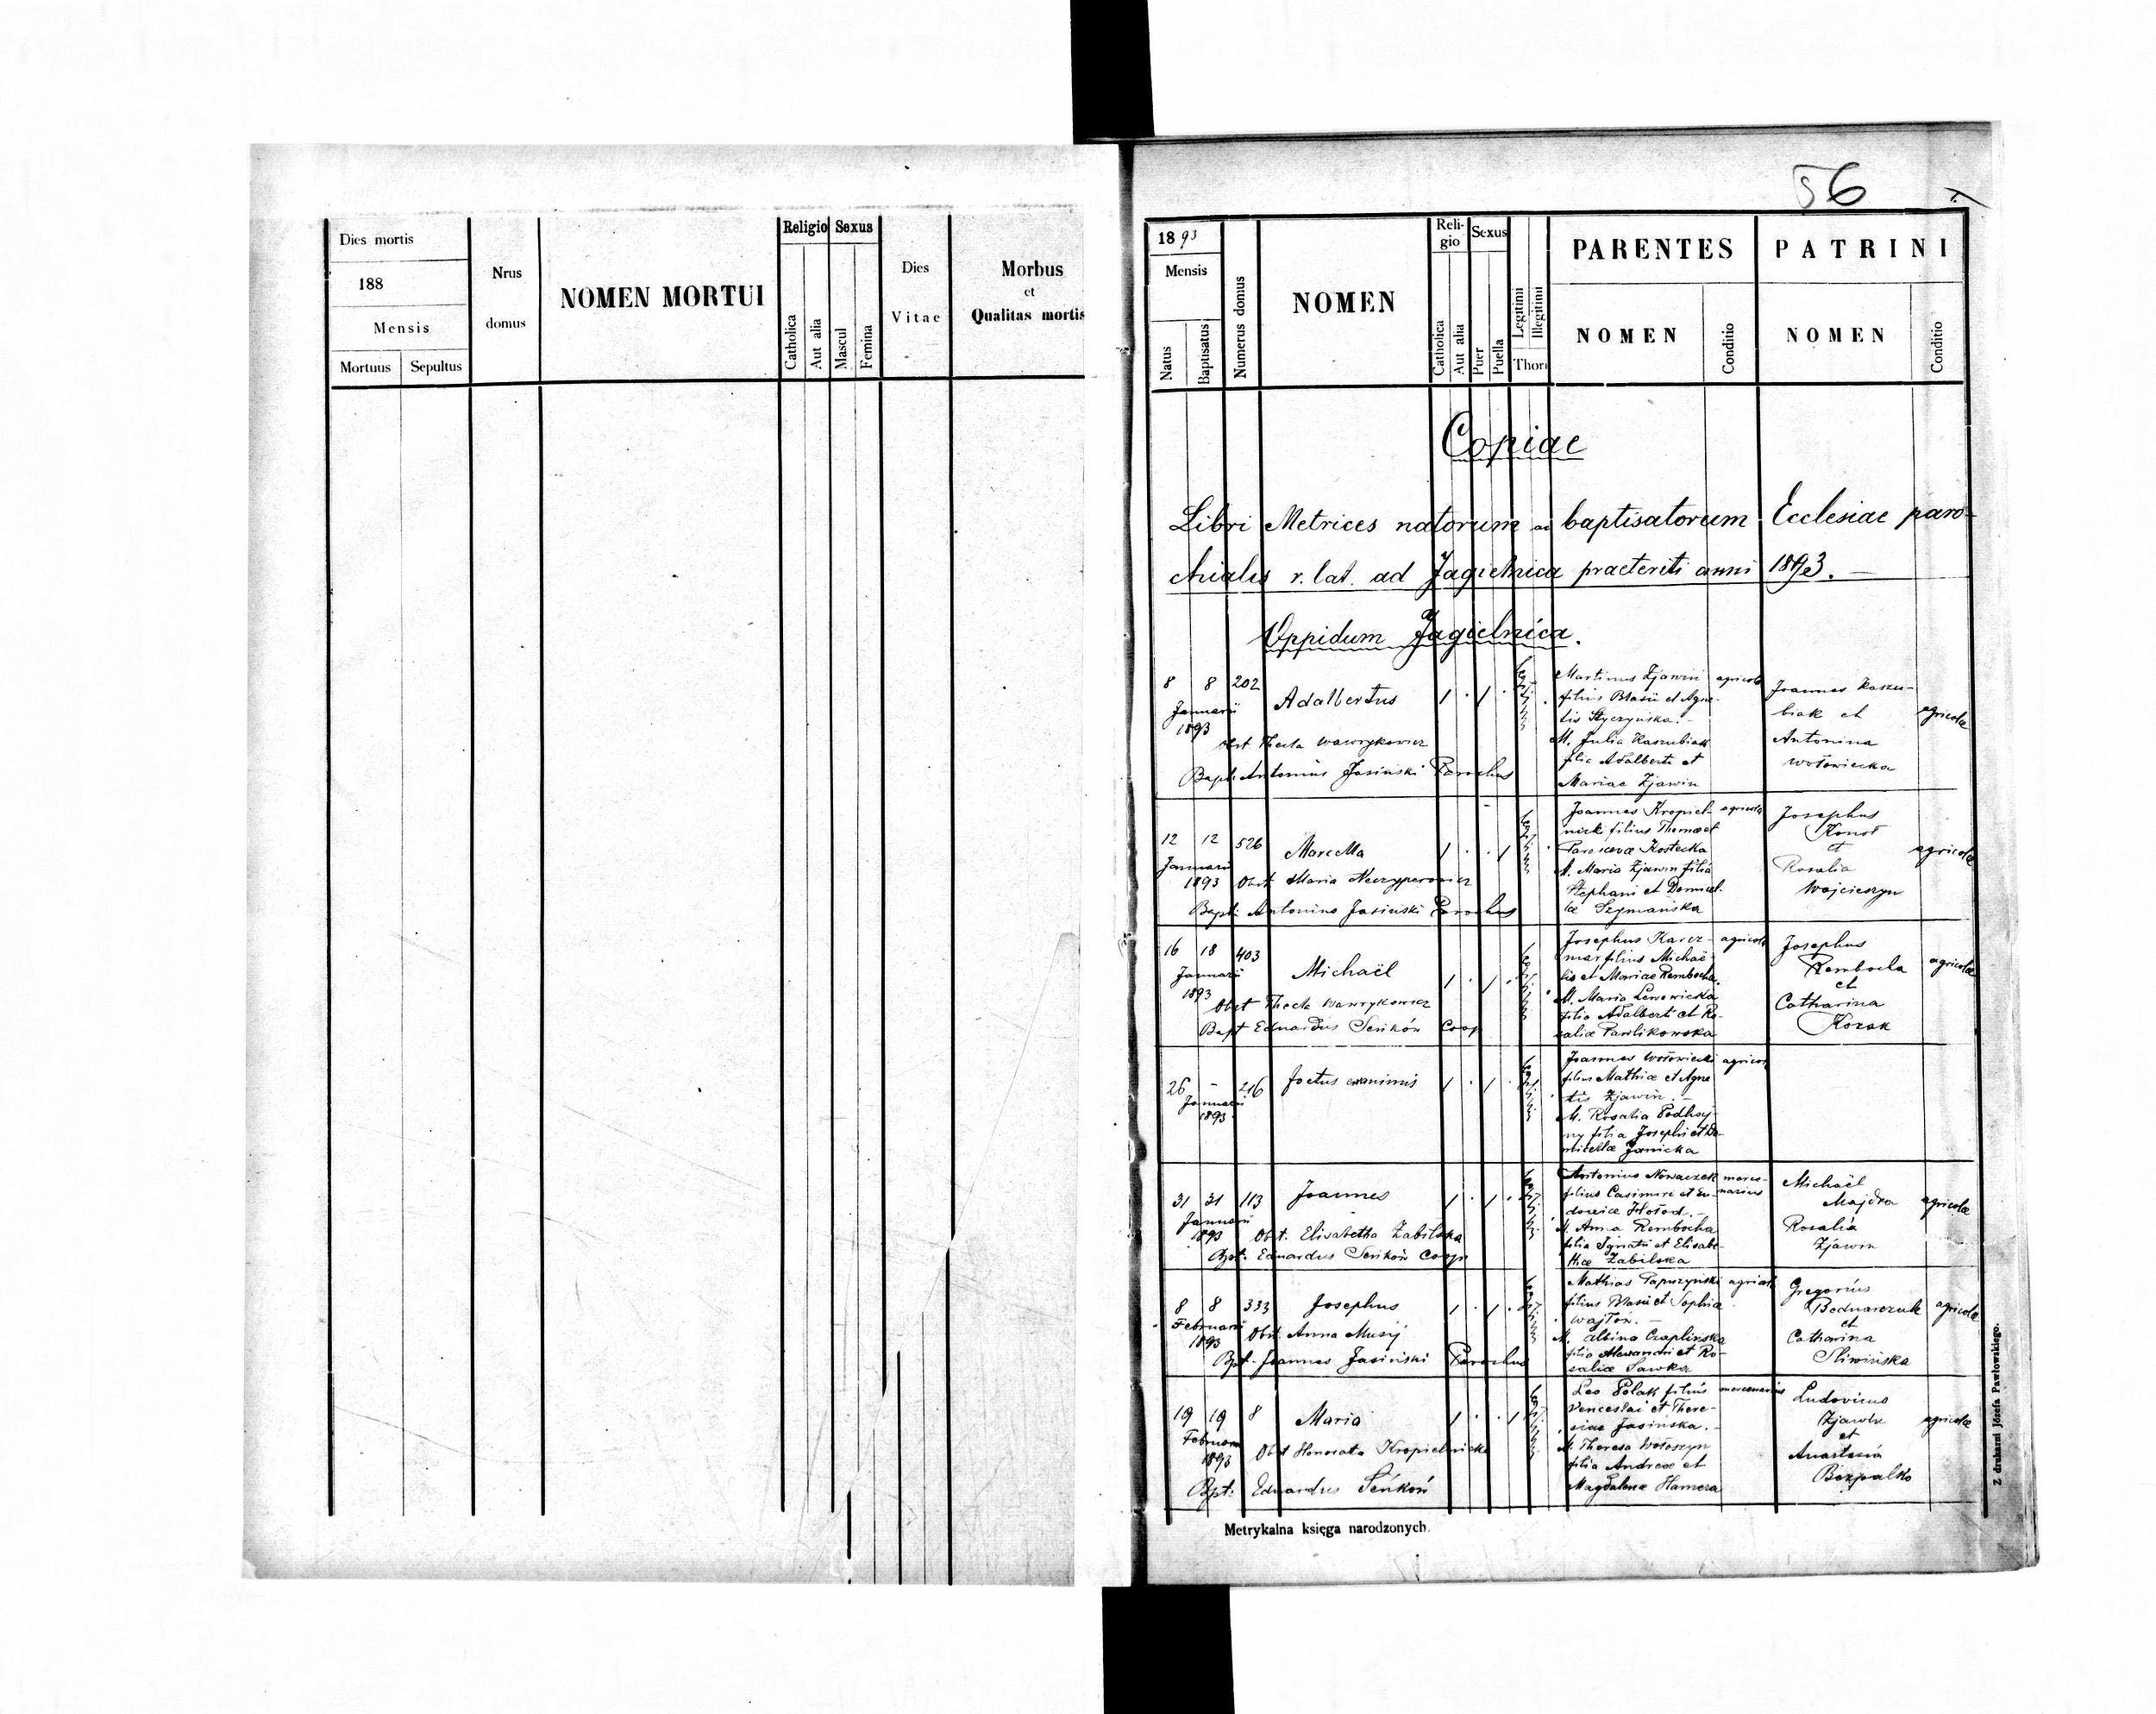 Dies mortis
188
Mensis
Mortuus
Sepultus
Nrus
domus
NOMEN MORTUI
Religio
Catholica
Aut alia
Sexus
Mascul
Femina
Dies
Vitae
Morbus
et
Qualitas mortis
56
1893
Mensis
Natus
Baptisatus
Numerus domus
NOMEN
Reli-
gio
Catholica
Aut alia
Sexus
Puer
Puella
Legitimi
Illegitimi
Thori
PARENTES
NOMEN
Conditio
PATRINI
NOMEN
Conditio
Copiae
Libri Metrices natorum ac baptisatorum Ecclesiae paro-
chialis r. lat. ad Jagielnica praeteriti anni 1893.
Oppidum Jagielnica.
8 8 202
Januarii
1893
Adalbertus
Obst Thecla Wawrykowicz
Bapt. Antonius Jasiński Parochus
Martinus Zjawin agricola
filius Blasii et Agne-
tis Styczyńska.-
M. Julia Kaszubiak
filia Adalberti et
Mariae Zjawin
Joannes Kaszu-
biak et
Antonina
Wołowiecka
agricolae
12 12 526
Januarii
1893
Marcella
Obst. Maria Neczyperowicz
Bapt. Antonius Jasiński Parochus
Joannes Kropiel- agricola
nicki filius Thomae et
Parascevae Kostecka
M. Maria Zjawin filia
Stephani et Domicel-
lae Szymańska
Josephus
Konot
et
Rosalia
Wojcieszyn
agricolae
16 18 403
Januarii
1893
Michaël
Obst Thecla Wawrykowicz
Bapt Eduardus Seńków Coop
Josephus Karcz- agricola
mar filius Michaë-
lis et Mariae Rembocha.
M. Maria Lewowicka
filia Adalberti et Ro-
saliae Pawlikowska
Josephus
Rembocha
et
Catharina
Kozak
agricolae
26 - 216
Januarii
1893
Foetus exanimis
Joannes Wołowiecki agricola
filius Mathiae et Agne
tis Zjawin.-
M. Rosalia Podhaj-
ny filia Josephi et Do-
micellae Janicka
31 31 113
Januarii
1893
Joannes
Obst. Elisabetha Zabilska
Bpt. Eduardus Seńków Coop
Antonius Nowaczek merce-
filius Casimiri et Lu- narius
dovicae Hołod.-
M Anna Rembocha
filia Ignatii et Elisabe-
thae Zabilska
Michaël
Majdra
Rosalia
Zjawin
agricolae
8 8 333
Februarii
1893
Josephus
Obst. Anna Musij
Bpt. Joannes Jasiński Parochus
Mathias Papuzyński agricola
filius Blasii et Sophiae
Wajtow.-
M. Albina Czaplińska
filia Alexandri et Ro-
saliae Sawka
Gregorius
Bednarczuk
et
Catharina
Sliwińska
agricolae
19 19 8
Februarii
1893
Maria
Obst Honorata Kropielnicka
Bpt. Eduardus Seńków
Leo Polak filius mercenarius
Venceslai et There-
siae Jasińska.-
M Theresa Wołoszyn
filia Andreae et
Magdalenae Hamera
Ludovicus
Zjawin
et
Anastasia
Bezpalko
agricolae
Metrykalna księga narodzonych.
Z drukarni Józefa Pawłowskiego.